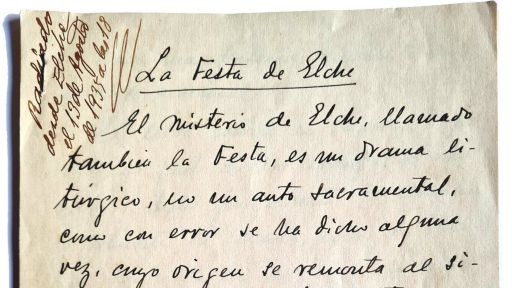 Radiado
desde Elche
el 13 de Agosto
de 1935 a las 18
La Festa de Elche
El Misterio de Elche, llamado
tambien la Festa, es un drama li-
túrgico, no un auto sacramental,
como con error se ha dicho alguna
vez, cuyo origen se remonta al si-